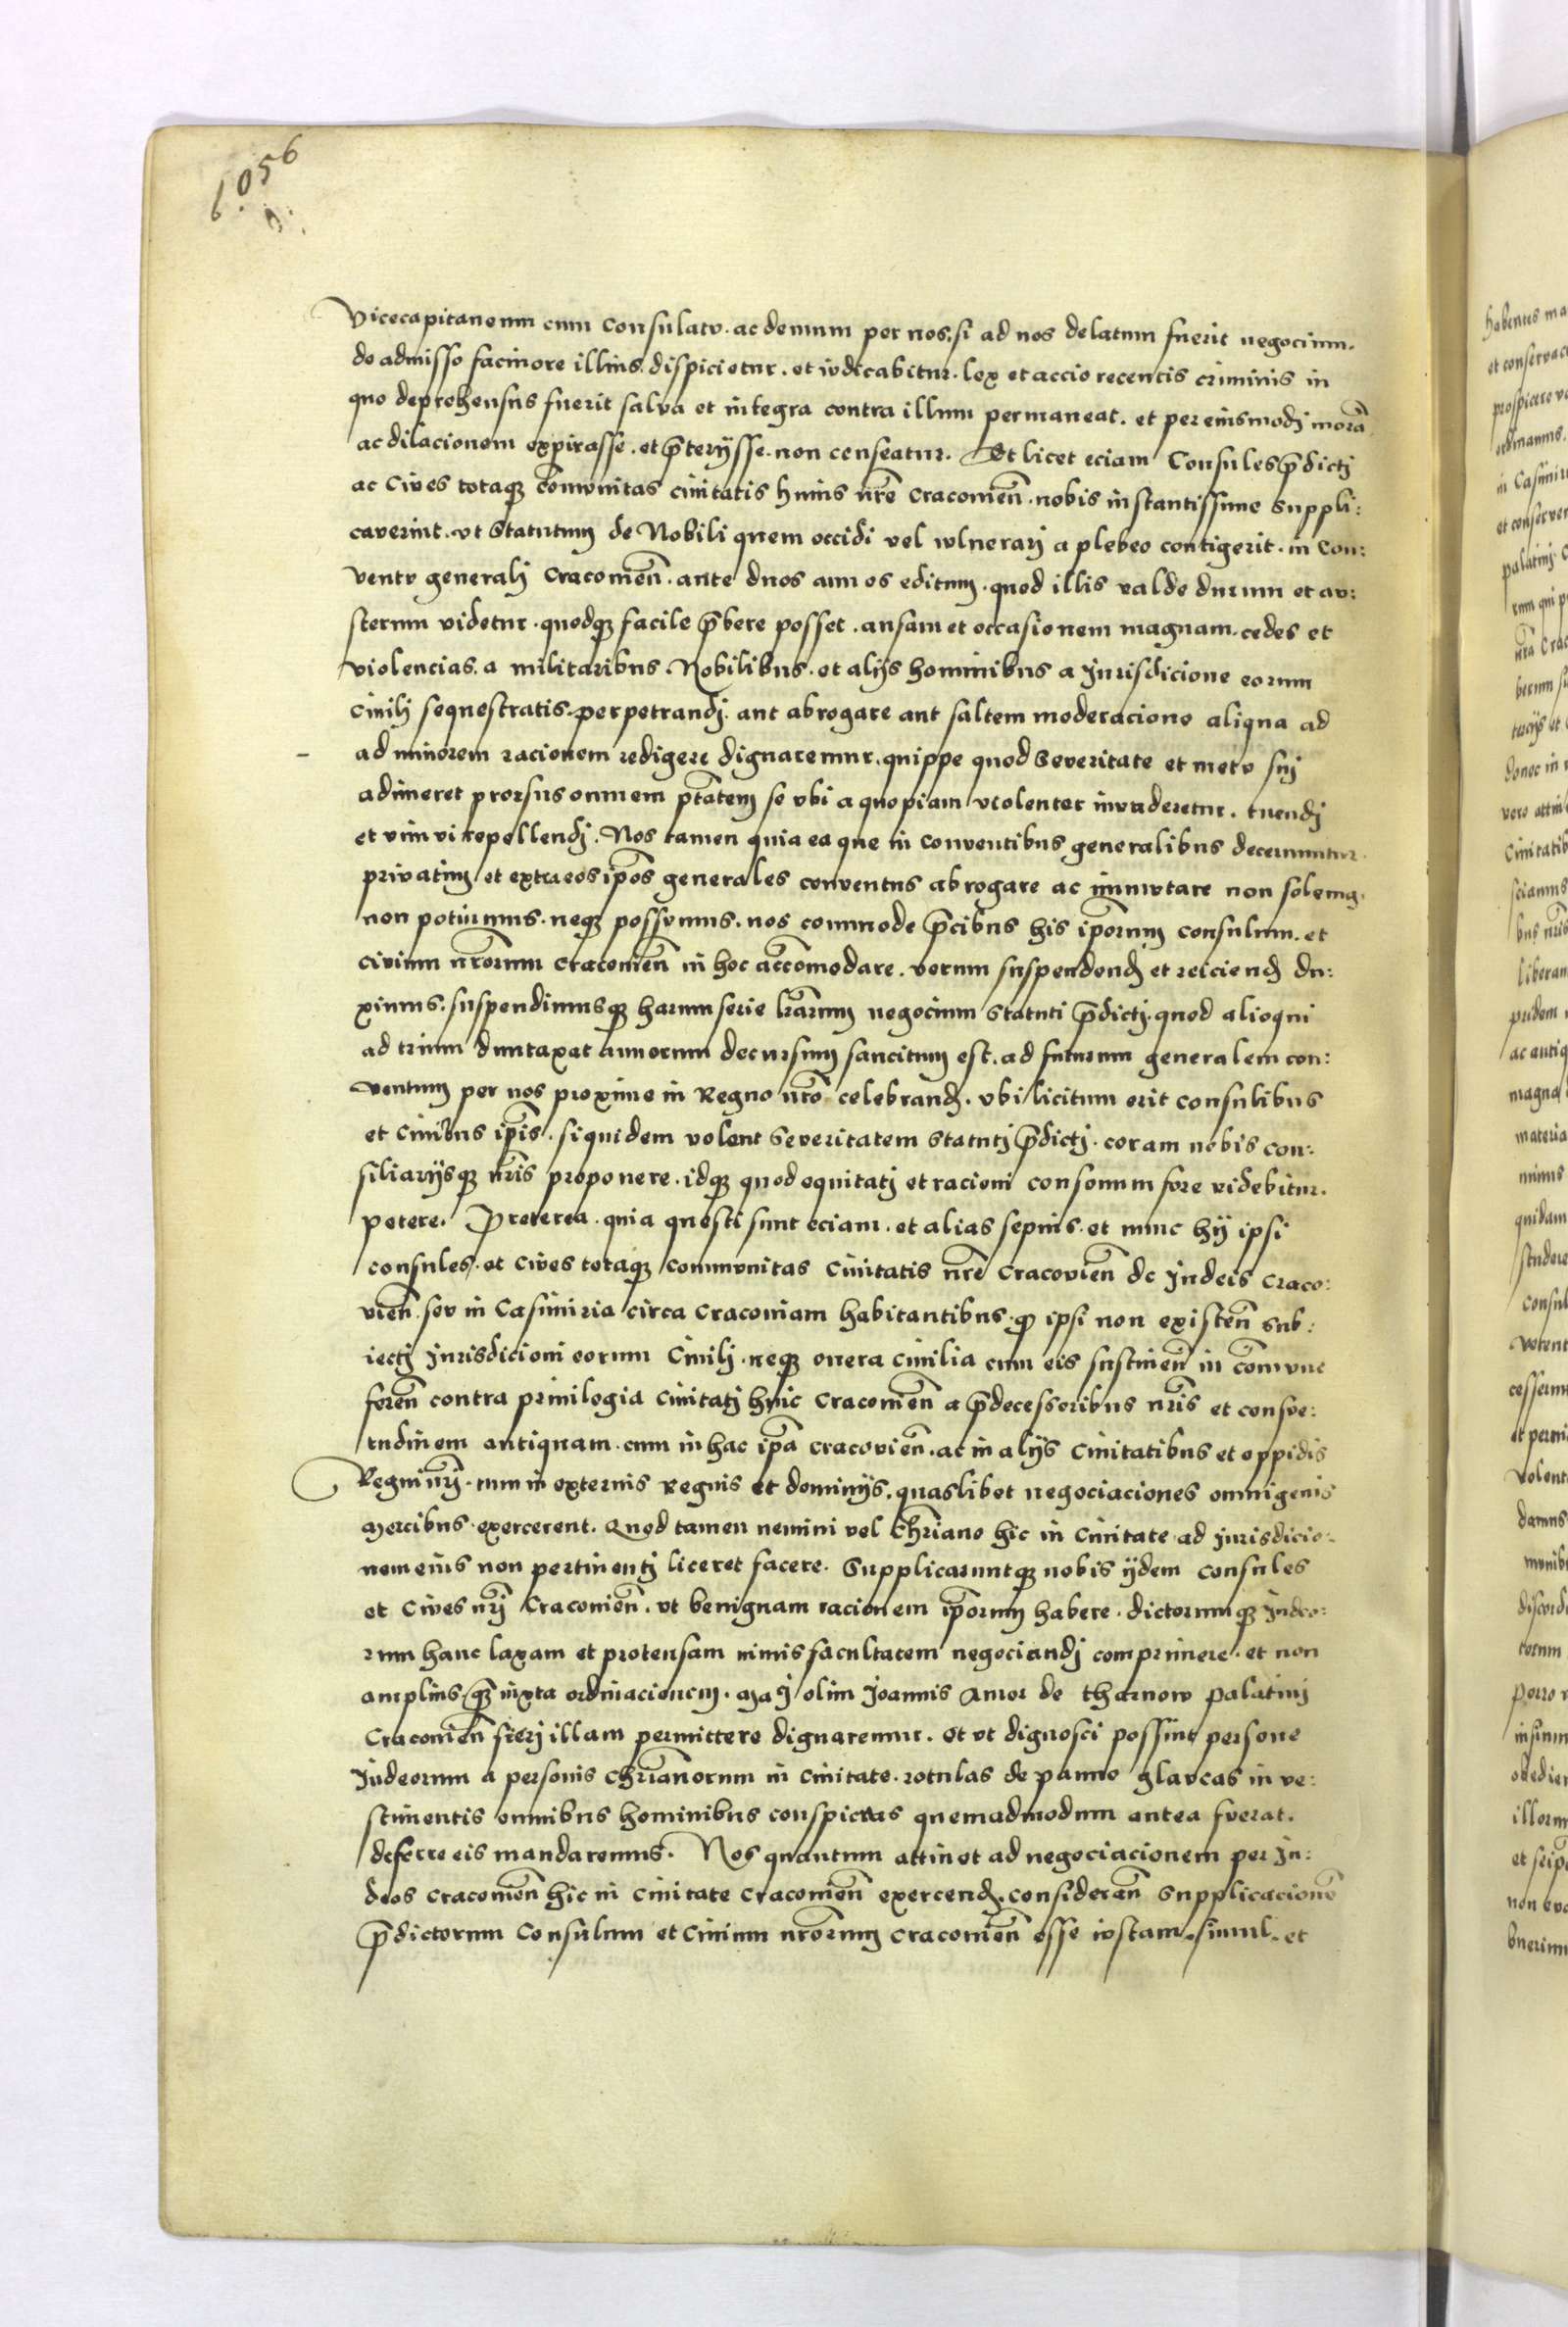 6056
Vicecapitaneum cum Consulatu. ac demum per nos, si ad nos delatum fuerit negocium.
de admisso facinore illius, dispicietur. et iudicabitur. lex et accio recentis criminis in
quo deprehensus fuerit salva et integra contra illum permaneat. et per eiusmodj morā
ac dilacionem expirasse. et p̄terijsse. non censeatur. Et licet eciam Consules p̄dictj
ac Cives totaqȝ com̄unitas civitatis huius nr̄e Cracovien̄. nobis instantissime suppli:
caverint. vt Statutum de Nobili quem occidi vel vulnerarj a plebeo contigerit. in Con:
ventu generalj Cracovien̄. ante duos annos editum. quod illis valde durum et au:
sterum videtur. quodqȝ facile p̄bere posset. ansam et occasionem magnam. cedes et
violencias. a militaribus. Nobilibus. et alijs hominibus a Jurisdicione eorum
Civilj sequestratis. perpetrandj. aut abrogare aut saltem moderacione aliqua ad
ad minorem racionem redigere dignaremur. quippe quod Severitate et metu suj
adimeret prorsus omnem ptātem se vbi a quopiam violenter invaderetur. tuendj
et vim vi repellendj. Nos tamen quia ea que in conventibus generalibus decernuntur.
privatim et extra eos ip̄os generales conventus abrogare ac immutare non solemus.
non potuimus. neqȝ possumus. nos commode p̄cibus his ip̄orum consulum. et
civium nr̄orum Cracovien̄ in hoc accōmodare. verum suspendend̄ et reiciend̄ du:
ximus. suspendimusqȝ harum serie lr̄arum negocium Statuti p̄dictj. quod alioqui
ad trium duntaxat annorum decursum sancitum est. ad futurum generalem con:
ventum per nos proxime in Regno nr̄o celebrand̄. vbi licitum erit consulibus
et civibus ip̄is. siquidem volent Severitatem Statutj p̄dictj. coram nobis con:
siliarijsqȝ nr̄is proponere. idqȝ quod equitatj et racioni consonum fore videbitur.
petere. Preterea. quia questi sunt eciam. et alias sepius. et nunc hij ipsi
consules. et Cives totaqȝ communitas Civitatis nr̄e Cracovien̄ de Judeis Craco:
vien̄. seu in Casimiria circa Cracoviam habitantibus. ꝙ ipsi non existen̄ sub:
iectj Jurisdicioni eorum Civilj. neqȝ onera Civilia cum eis sustinen̄ in com̄une
foren̄ contra privilegia Civitatj huic Cracovien̄ a p̄decessoribus nr̄is et consue:
tudinem antiquam. cum in hac ip̄a cracovien̄. ac in alijs Civitatibus et oppidis
Regni nr̄j. tum in externis Regnis et dominijs. quaslibet negociaciones omnigenis
Mercibus exercerent. Quod tamen nemini vel Chr̄iano hic in Civitate ad Jurisdicio:
nem eius non pertinentj liceret facere. Supplicaruntqȝ nobis ijdem consules
et Cives nr̄j Cracovien̄. vt benignam racionem ip̄orum habere. dictorumqȝ Judeo:
rum hanc laxam et protensam nimis facultatem negociandj comprimere. et non
amplius. qȝ iuxta ordinacionem. olim Joannis Amor de tharnow palatinj
Cracovien̄ fierj illam permittere dignaremur. et vt dignosci possint persone
Judeorum a personis Chr̄ianorum in Civitate. rotulas de panno glaucas in ve:
stimentis omnibus hominibus conspicuas quemadmodum antea fuerat.
deferre eis mandaremus. Nos quantum attinet ad negociacionem per Ju:
deos Cracovien̄ hic in Civitate Cracovien̄ exercend̄. consideran̄ Supplicacionē
p̄dictorum Consulum et Civium nr̄orum Cracovien̄ esse iustam. simul. et